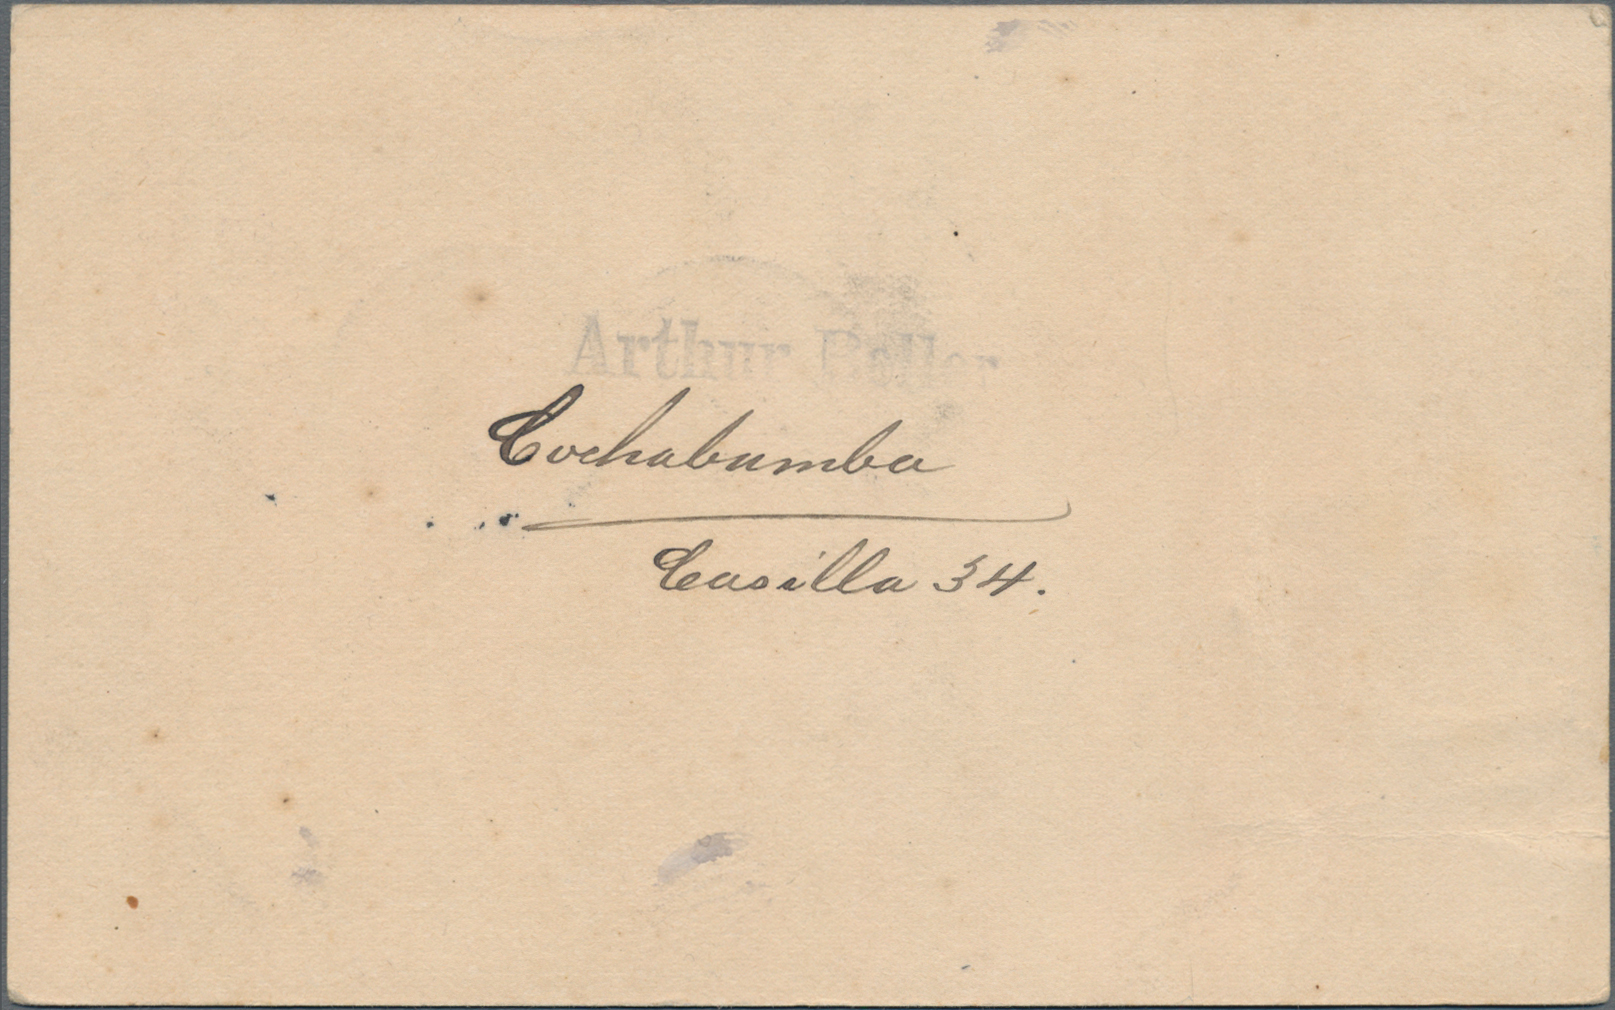 Arthur
Cochabamba
Casilla 34.